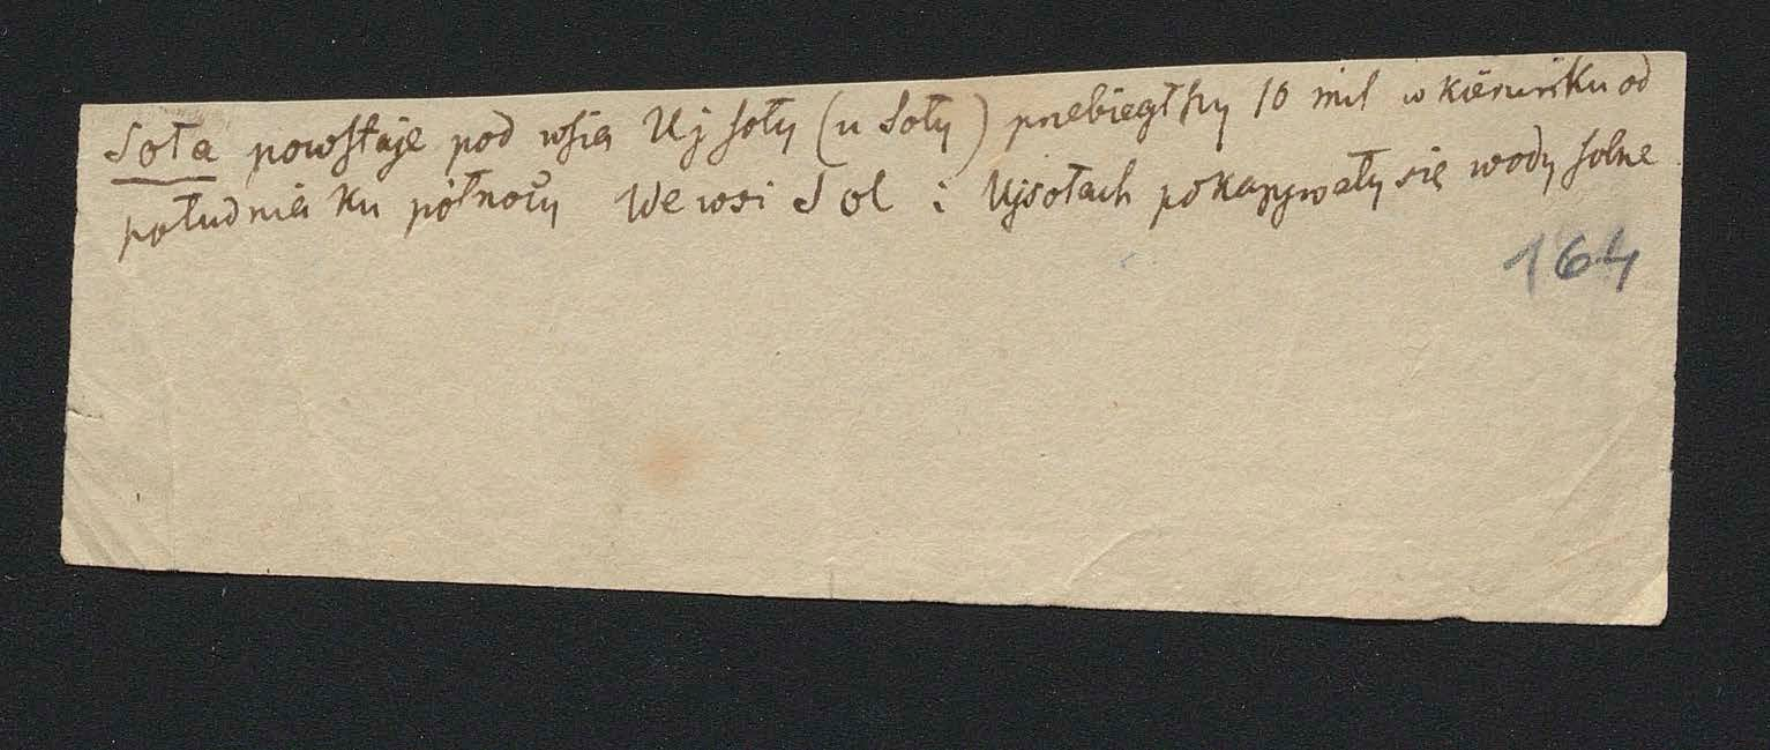 Soła powstaje pod wsią Ujsoły (u Soły) przebiegłszy 10 mil w kierunku od
południa ku północy We wsi Sol i Ujsołach pokazywały się wody solne
164